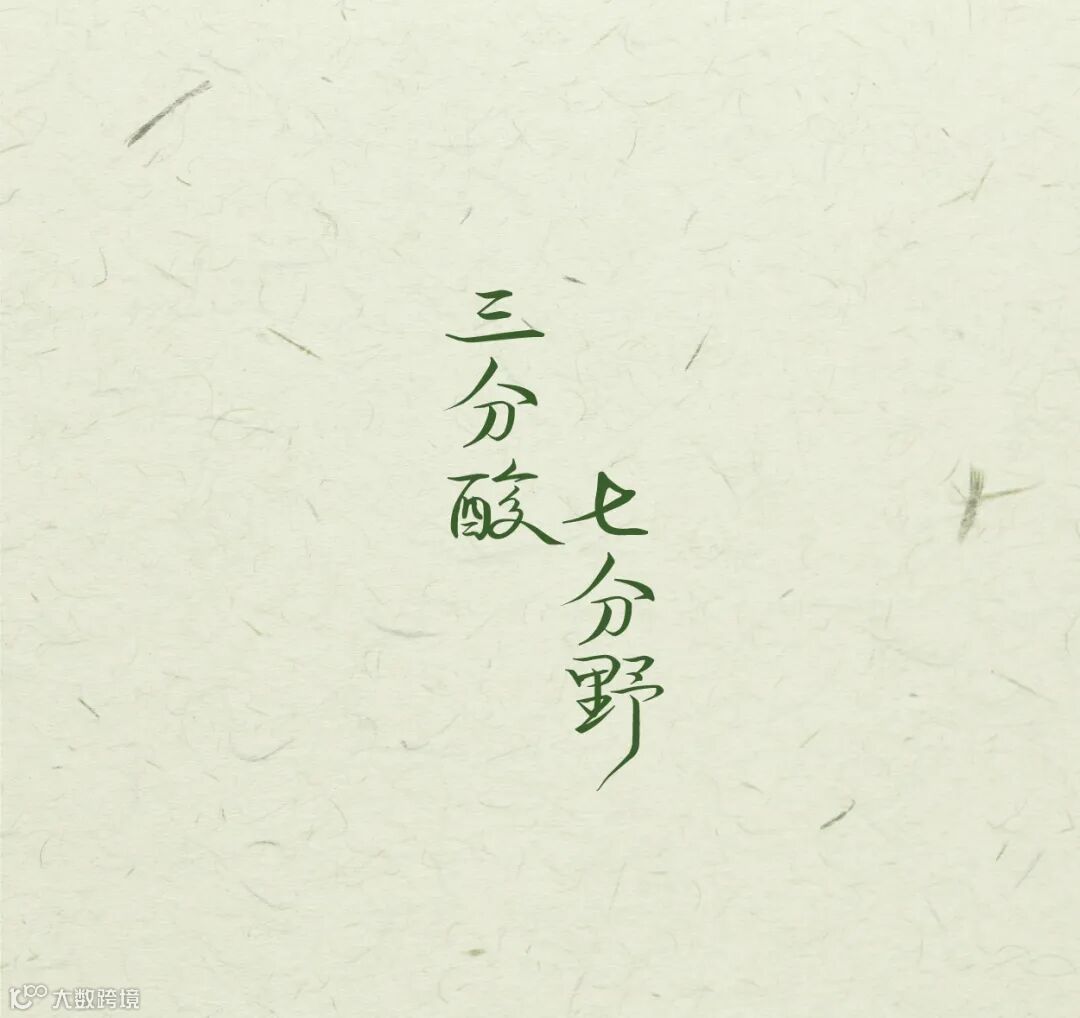 三分酸
七分野
大数跨境